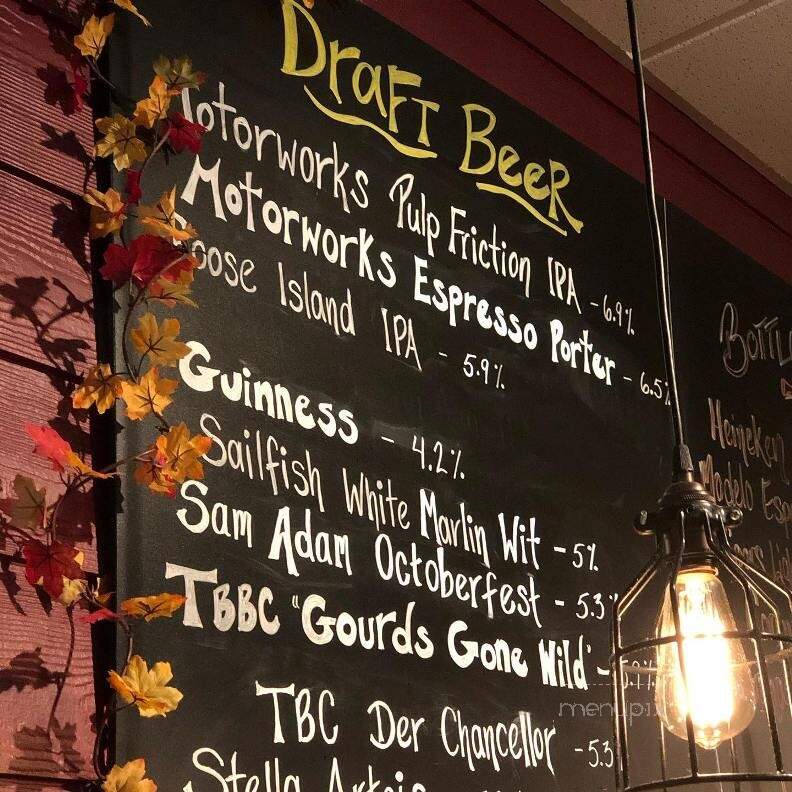 Draft Beer
Motorworks Pulp Friction IPA - 6.9%
Motorworks Espresso Porter - 6.5%
Goose Island IPA - 5.9%
Guinness - 4.2%
Sailfish White Marlin Wit - 5%
Sam Adam Octoberfest - 5.3
TBBC "Gourds Gone Wild" -
TBC Der Chancellor - 5.3
Stella Artois
Bottle
Heineken
Modelo Esp
menupix